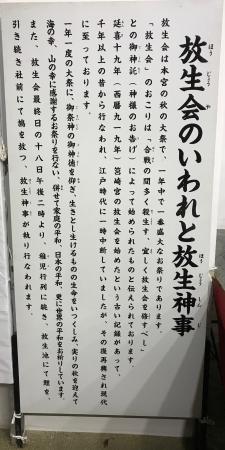 放生会のいわれと放生神事
ほう じょう や
ほう じょう しん じ
放生会は本宮の秋の大祭で、一年中で一番盛大なお祭りであります。
「放生会」のおこりは「合戦の間多く殺生す、宜しく放生会を修すべし」
との御神託(神様のお告げ)によって始められたものと伝えられております。
延喜十九年(西暦九一九年)筥崎宮の放生会を始めたという古い記録があって、
千年以上の昔から行なわれ、江戸時代に一時中断していましたが、その後再興され現代
に至っております。
一年一度の大祭に、御祭神の御神徳を仰ぎ、生きとし生けるものの生命をいつくしみ、実りの秋を迎えて
海の幸、山の幸に感謝するお祭りを行ない、併せて家庭の平和、日本の平和、更に世界の平和をお祈りしています。
また、放生会最終日の十八日午後二時より、稚児行列に続き、放生池にて鯉を、
引き続き社前にて鳩を放つ、放生神事が執り行なわれます。